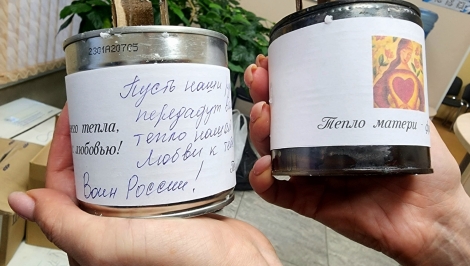 2301A207C5
тепла,
любовью!
Пусть наши
передадут
тепло нашей
Любви к
Воин России!
Тепло матери -